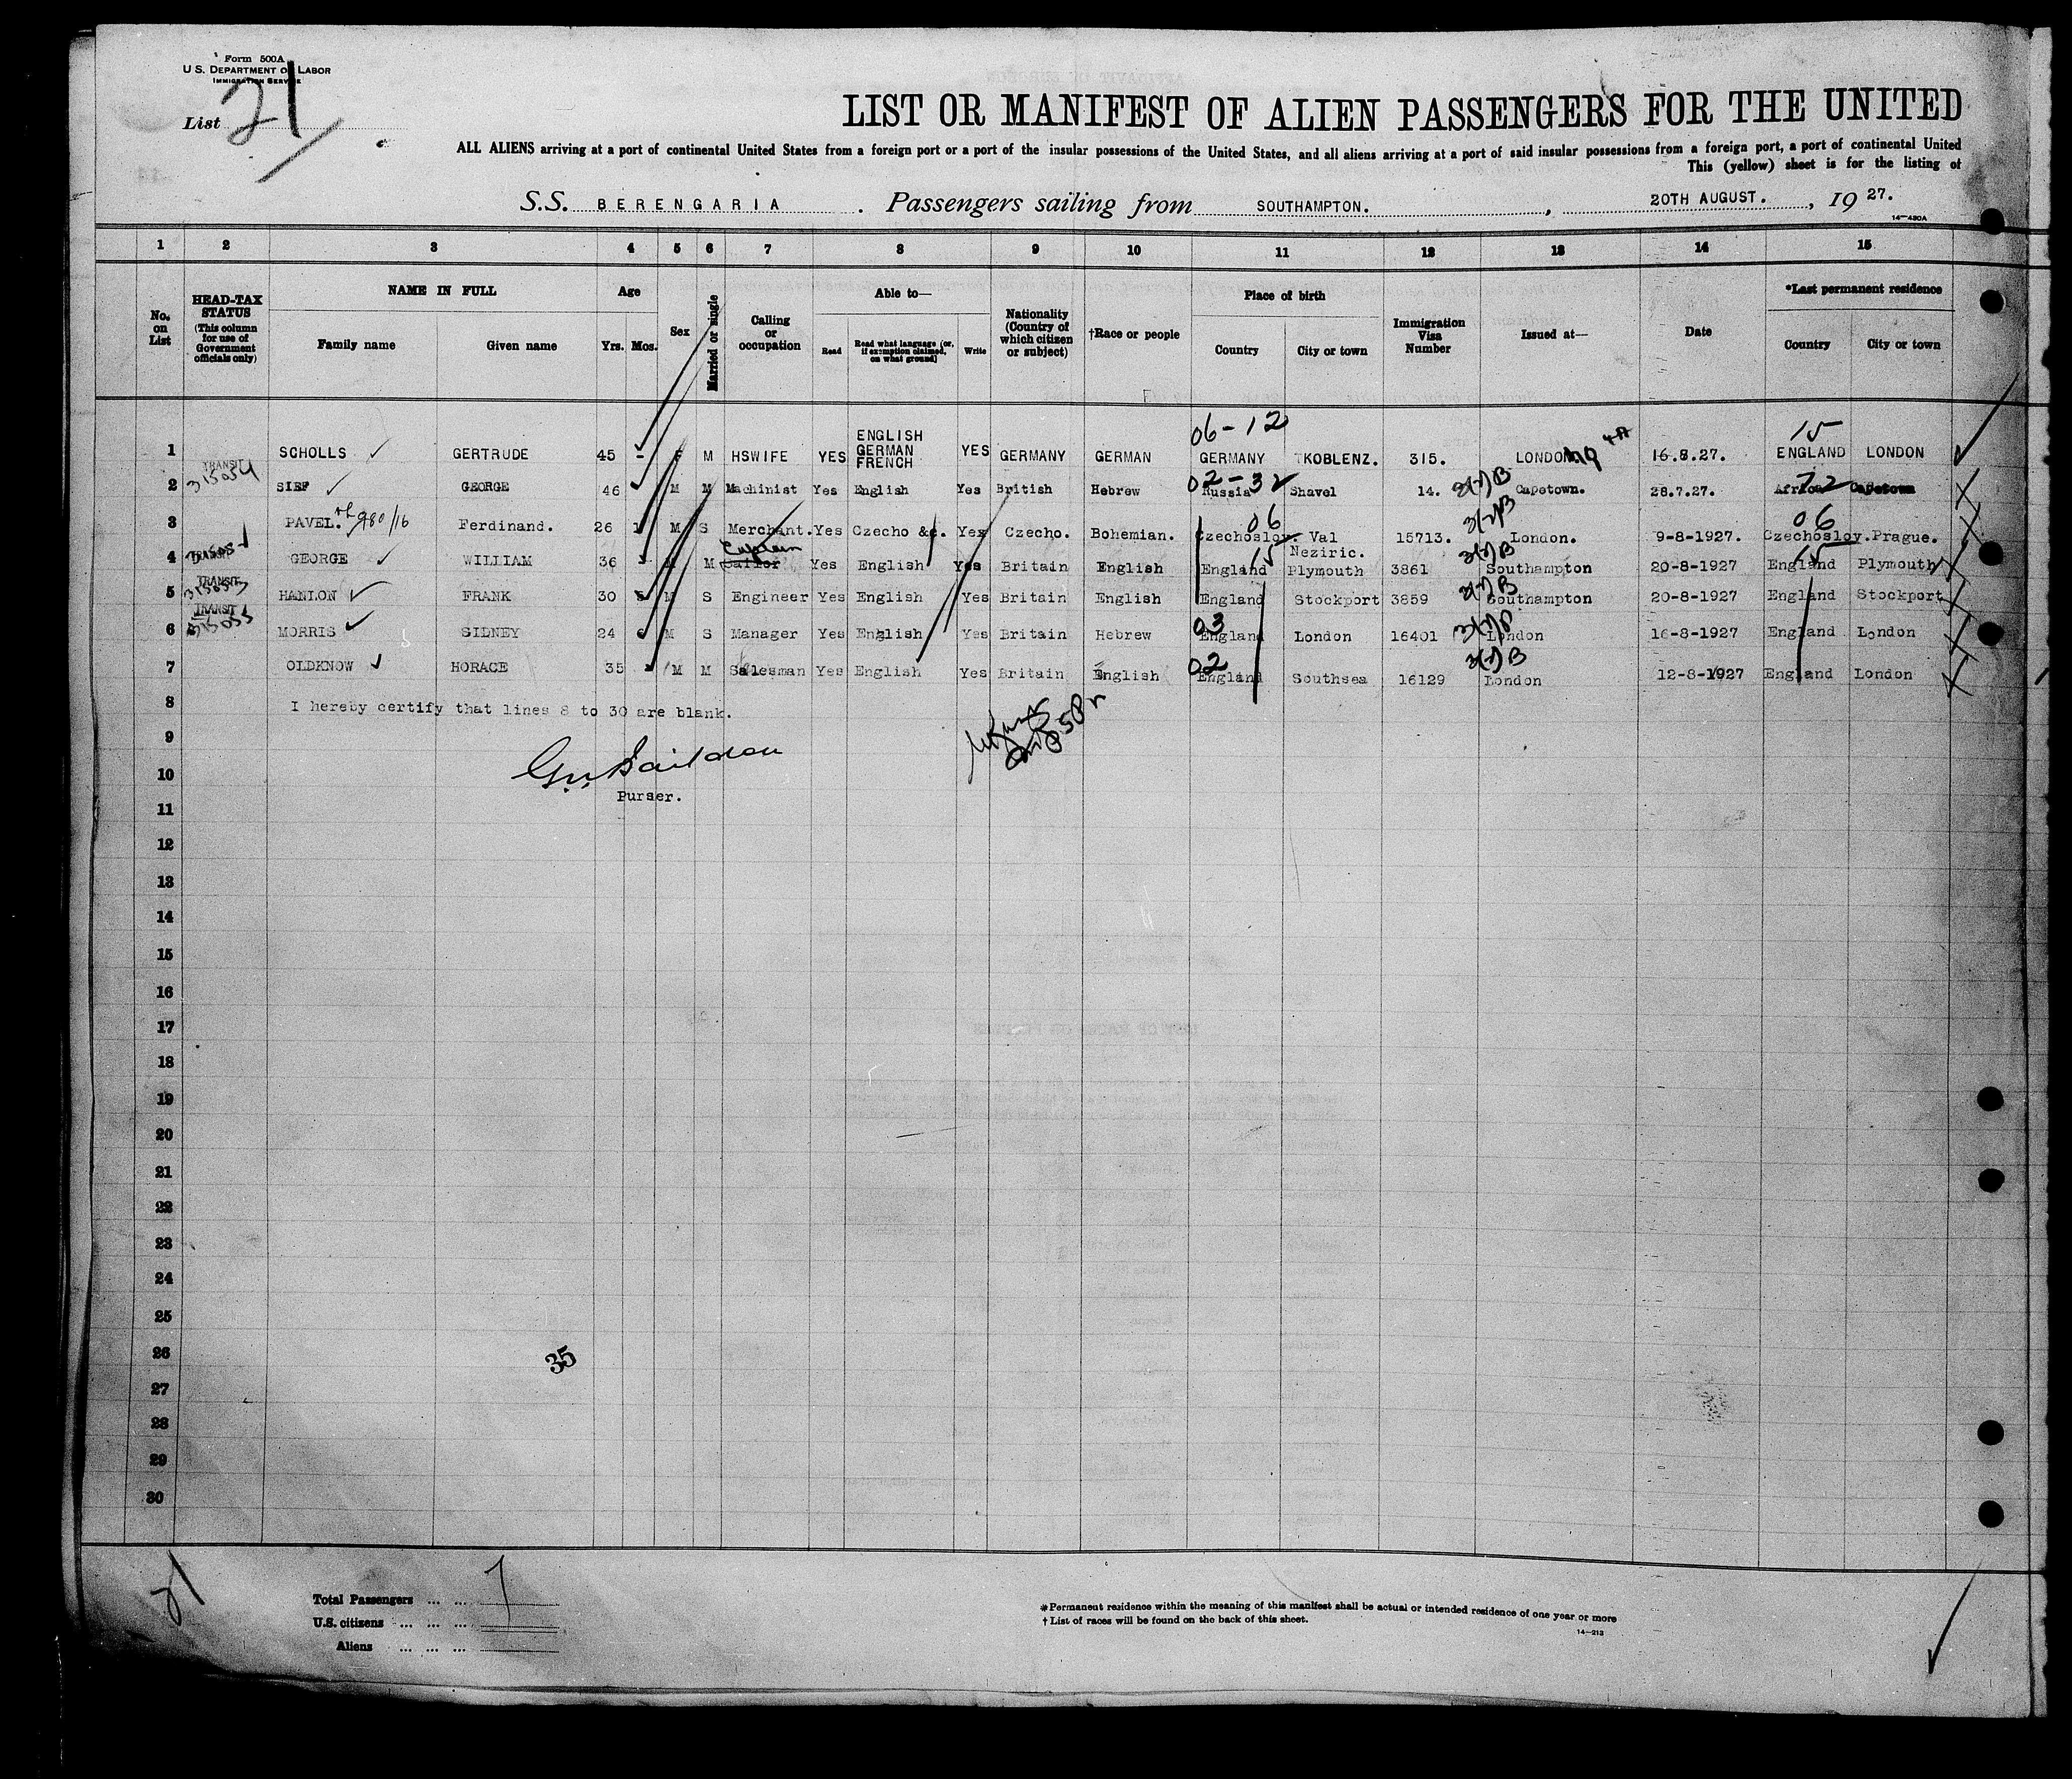 Form 500A
U.S. DEPARTMENT OF LABOR
IMMIGRATION SERVICE
List 21
LIST OR MANIFEST OF ALIEN PASSENGERS FOR THE UNITED
ALL ALIENS arriving at a port of continental United States from a foreign port or a port of the insular possessions of the United States, and all aliens arriving at a port of said insular possessions from a foreign port, a port of continental United
This (yellow) sheet is for the listing of
S.S. BERENGARIA. Passengers sailing from SOUTHAMPTON., 20TH AUGUST., 1927.
14—430A
1 2 3 4 5 6 7 8 9 10 11 12 13 14 15
No. on List
HEAD-TAX STATUS (This column for use of Government officials only)
NAME IN FULL
Family name Given name
Age
Yrs. Mos.
Sex
Married or single
Calling or occupation
Able to—
Read Read what language (or, if exemption claimed, on what ground) Write
Nationality (Country of which citizen or subject)
†Race or people
Place of birth
Country City or town
Immigration Visa Number
Issued at—
Date
*Last permanent residence
Country City or town
06-12 15
1 SCHOLLS GERTRUDE 45 - F M HSWIFE YES ENGLISH GERMAN FRENCH YES GERMANY GERMAN GERMANY KOBLENZ. 315. LONDON 16.8.27. ENGLAND LONDON
TRANSIT 315054
2 SIEF GEORGE 46 M M Machinist Yes English Yes British Hebrew 02-32 Russia Shavel 14. 3(2)B Capetown. 28.7.27. Africa 72 Capetown
3 PAVEL. 980/16 Ferdinand. 26 1 M S Merchant. Yes Czecho &c. Yes Czecho. Bohemian. 06 Czechoslov. Val Neziric. 15713. 3(2)B London. 9-8-1927. 06 Czechoslov. Prague.
TRANSIT
4 GEORGE WILLIAM 36 M M Sailor Captain Yes English Yes Britain English England 15 Plymouth 3861 3(2)B Southampton 20-8-1927 15 England Plymouth
TRANSIT 315053
5 HANLON FRANK 30 M S Engineer Yes English Yes Britain English England Stockport 3859 3(2)B Southampton 20-8-1927 England Stockport
TRANSIT 315055
6 MORRIS SIDNEY 24 M S Manager Yes English Yes Britain Hebrew 03 England London 16401 London 16-8-1927 England London
7 OLDKNOW HORACE 35 M M Salesman Yes English Yes Britain English 02 England Southsea 16129 3(2)B London 12-8-1927 England London
8 I hereby certify that lines 8 to 30 are blank.
9
10
Purser.
11
12
13
14
15
16
17
18
19
20
21
22
23
24
25
26
35
27
28
29
30
21
Total Passengers ... ... 7
U.S. citizens ... ... ...
Aliens ... ... ...
*Permanent residence within the meaning of this manifest shall be actual or intended residence of one year or more
† List of races will be found on the back of this sheet.
14—213